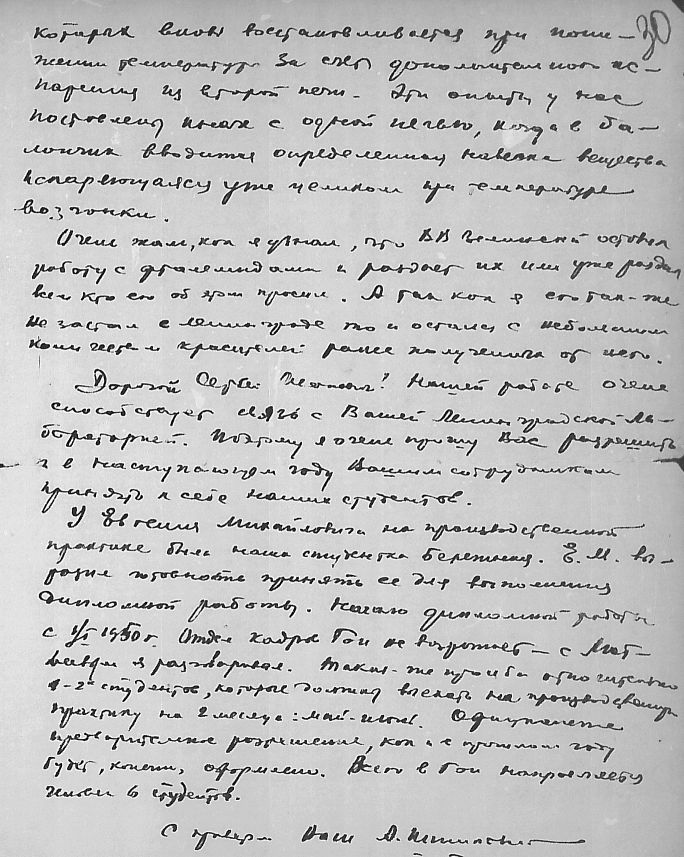 30
которых вновь восстанавливается при пони-
жении температуры за счет дополнительного ис-
парения из второй печи. Эти опыты у нас
поставлены иначе с одной печью, когда в ба-
лончик вводится определенная навеска вещества
испаряющаяся уже целиком при температуре
возгонки.
Очень жаль, как я узнал, что В В Зелинский оставил
работу с фталемидами и раздает их или уже раздал
всем кто его об этом просил. А так как я его так-же
не застал в Ленинграде то и остался с небольшим
количеством красителей ранее полученных от него.
Дорогой Сергей! Нашей работе очень
способствует связь с Вашей Ленинградской ла-
бораторией. Поэтому я очень прошу Вас разрешить
и в наступающем году Вашим сотрудникам
принять к себе наших студентов.
У Евгения Михайловича на производственной
практике была наша студентка. Е. М. вы-
разил готовность принять ее для выполнения
дипломной работы. Начало дипломной работы
с 1/II 1950 г. Отдел кадров ГОИ не возражает – с Мат-
веевым я разговаривал. Такая-же просьба относительно
1-2х студентов, которые должны выехать на производственную
практику на 2 месяца: май-июнь. Официальное
предварительное разрешение, как и в прошлом году
будет, конечно, оформлено. Всего в ГОИ направляется
человек 6 студентов.
С приветом Ваш А.